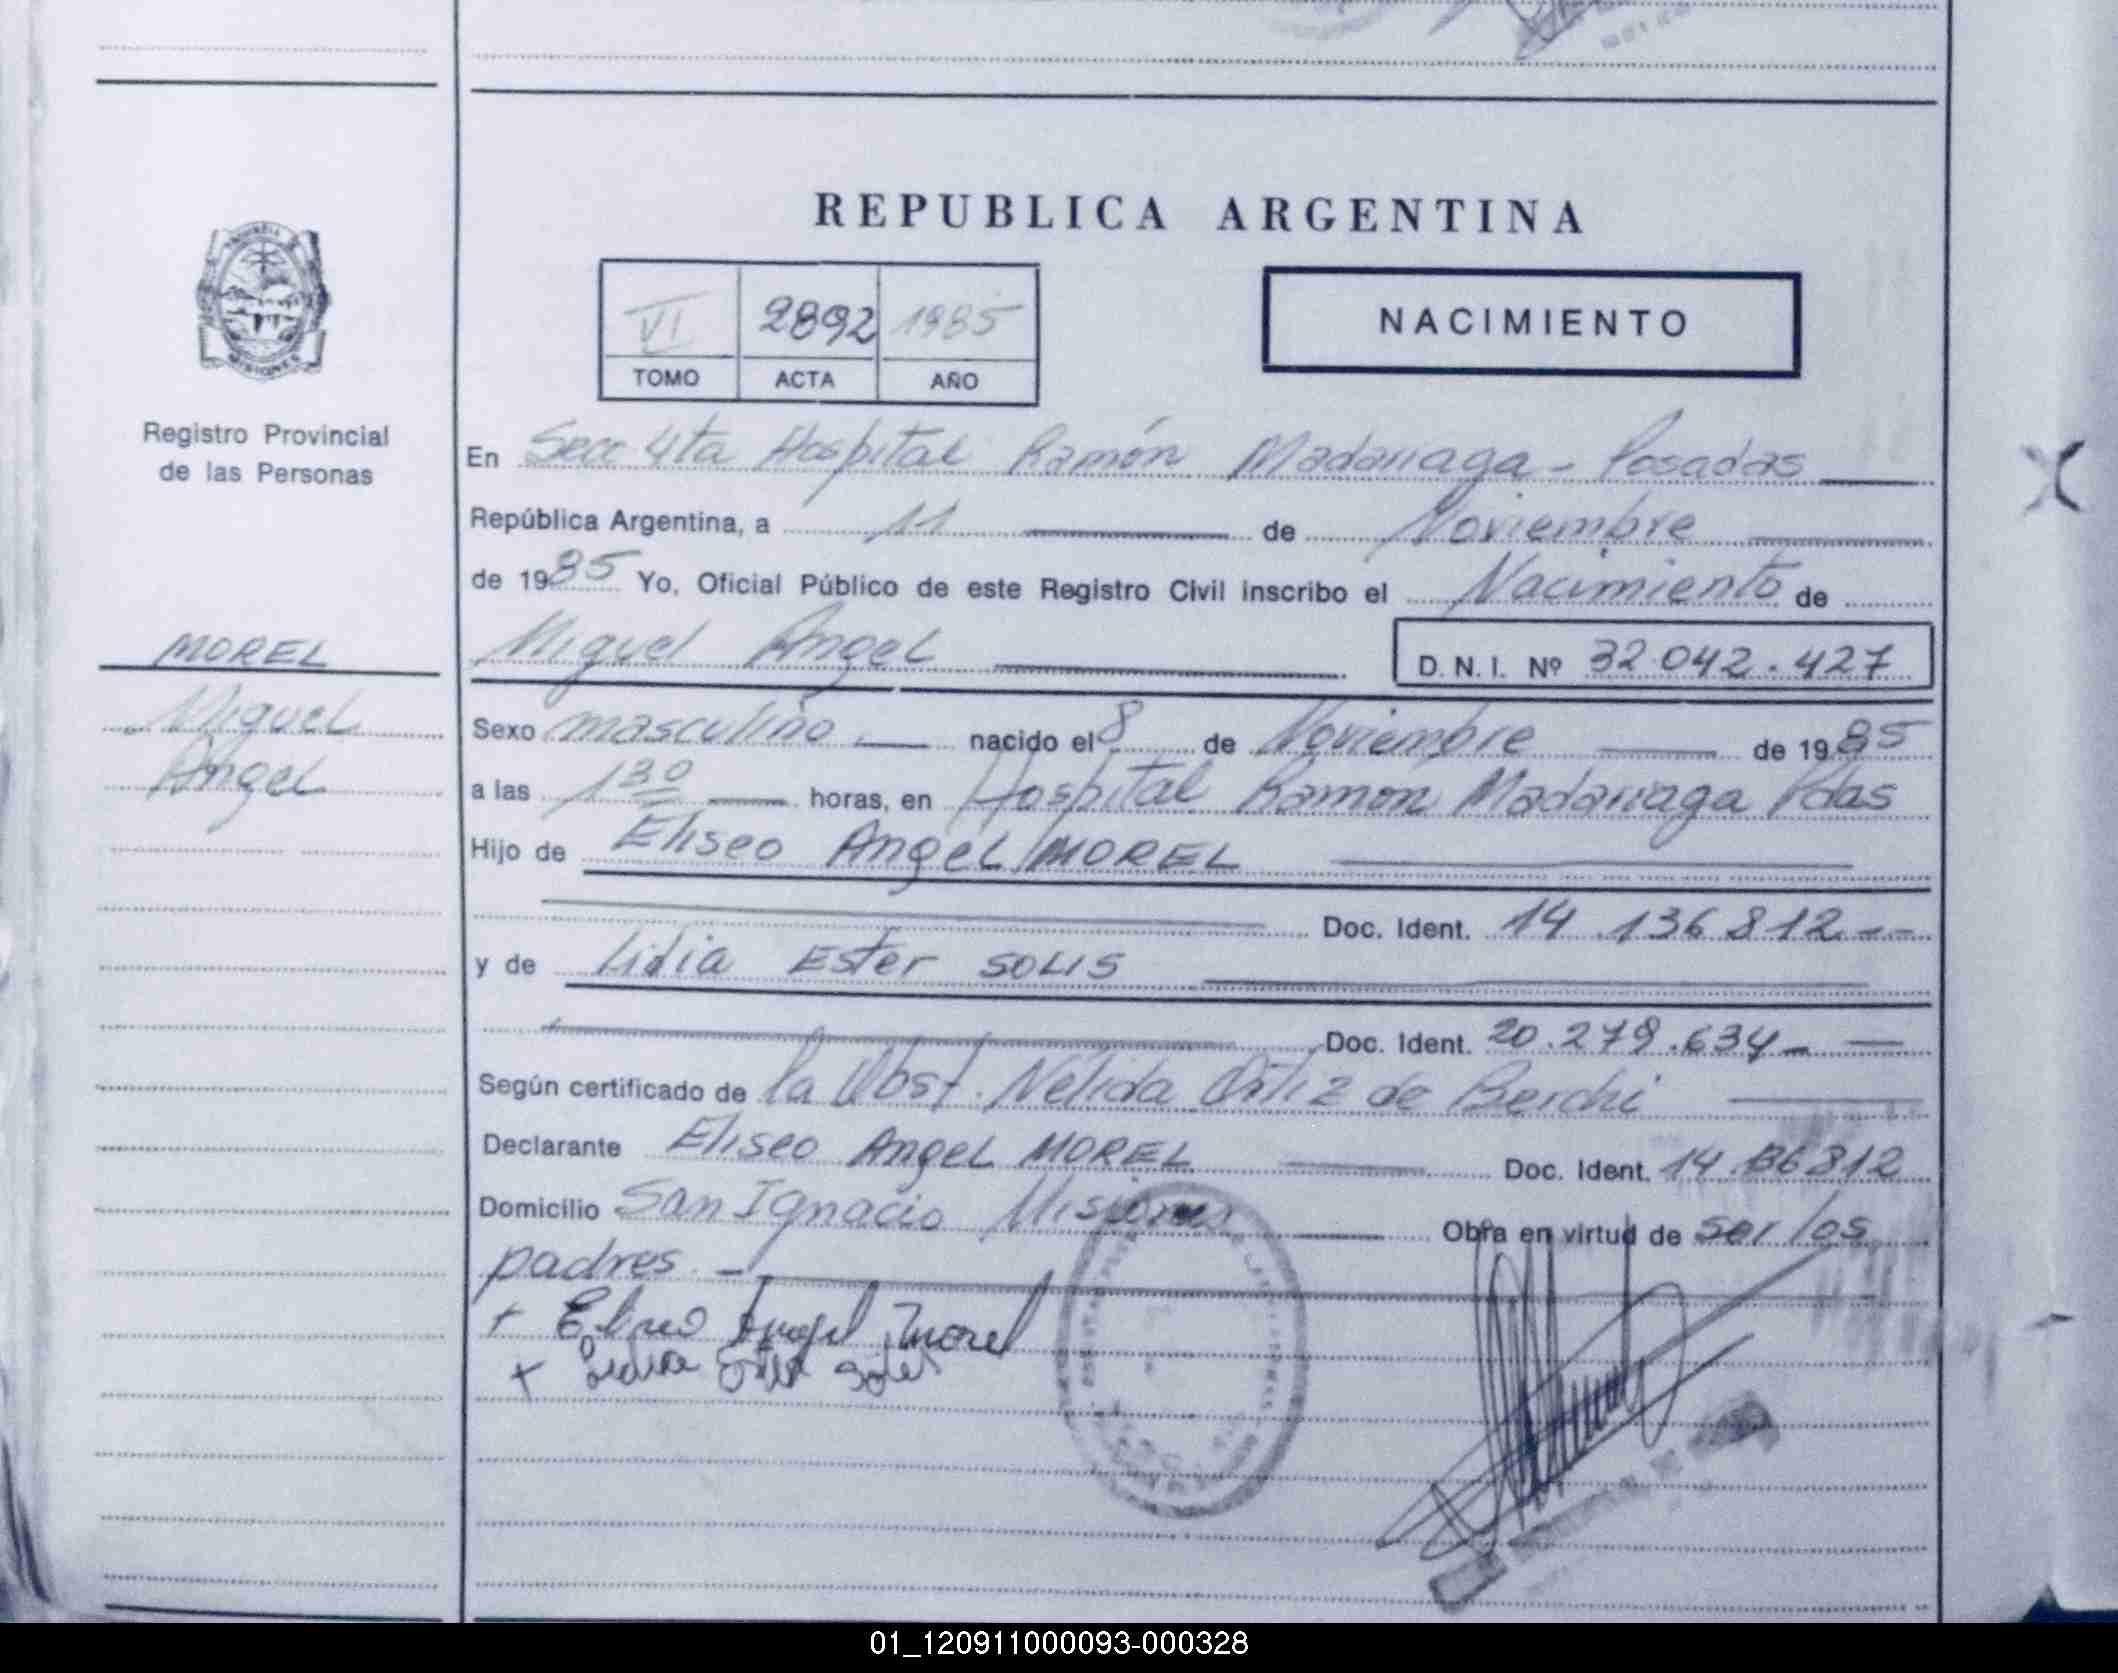 REPUBLICA ARGENTINA
VI 2892 1985
TOMO ACTA AÑO
NACIMIENTO
Registro Provincial
de las Personas
MOREL
Miguel
Angel
En Secc 4ta Hospital Ramón Madariaga - Posadas
República Argentina, a 11 de Noviembre
de 1985 Yo, Oficial Público de este Registro Civil inscribo el Nacimiento de
Miguel Angel D.N.I. Nº 32.042.427
Sexo masculino nacido el 8 de Noviembre de 1985
a las 1 30 horas, en Hospital Ramón Madariaga Pdas
Hijo de Eliseo Angel MOREL
Doc. Ident. 14.136.812--
y de Lidia Ester SOLIS
Doc. Ident. 20.279.634-
Según certificado de la Obst. Nélida Ortiz de Berchi
Declarante Eliseo Angel MOREL Doc. Ident. 14.136812
Domicilio San Ignacio Misiones Obra en virtud de ser los
padres. -
+ Eliseo Angel Morel
+ Lidia Ester Solis
01_120911000093-000328